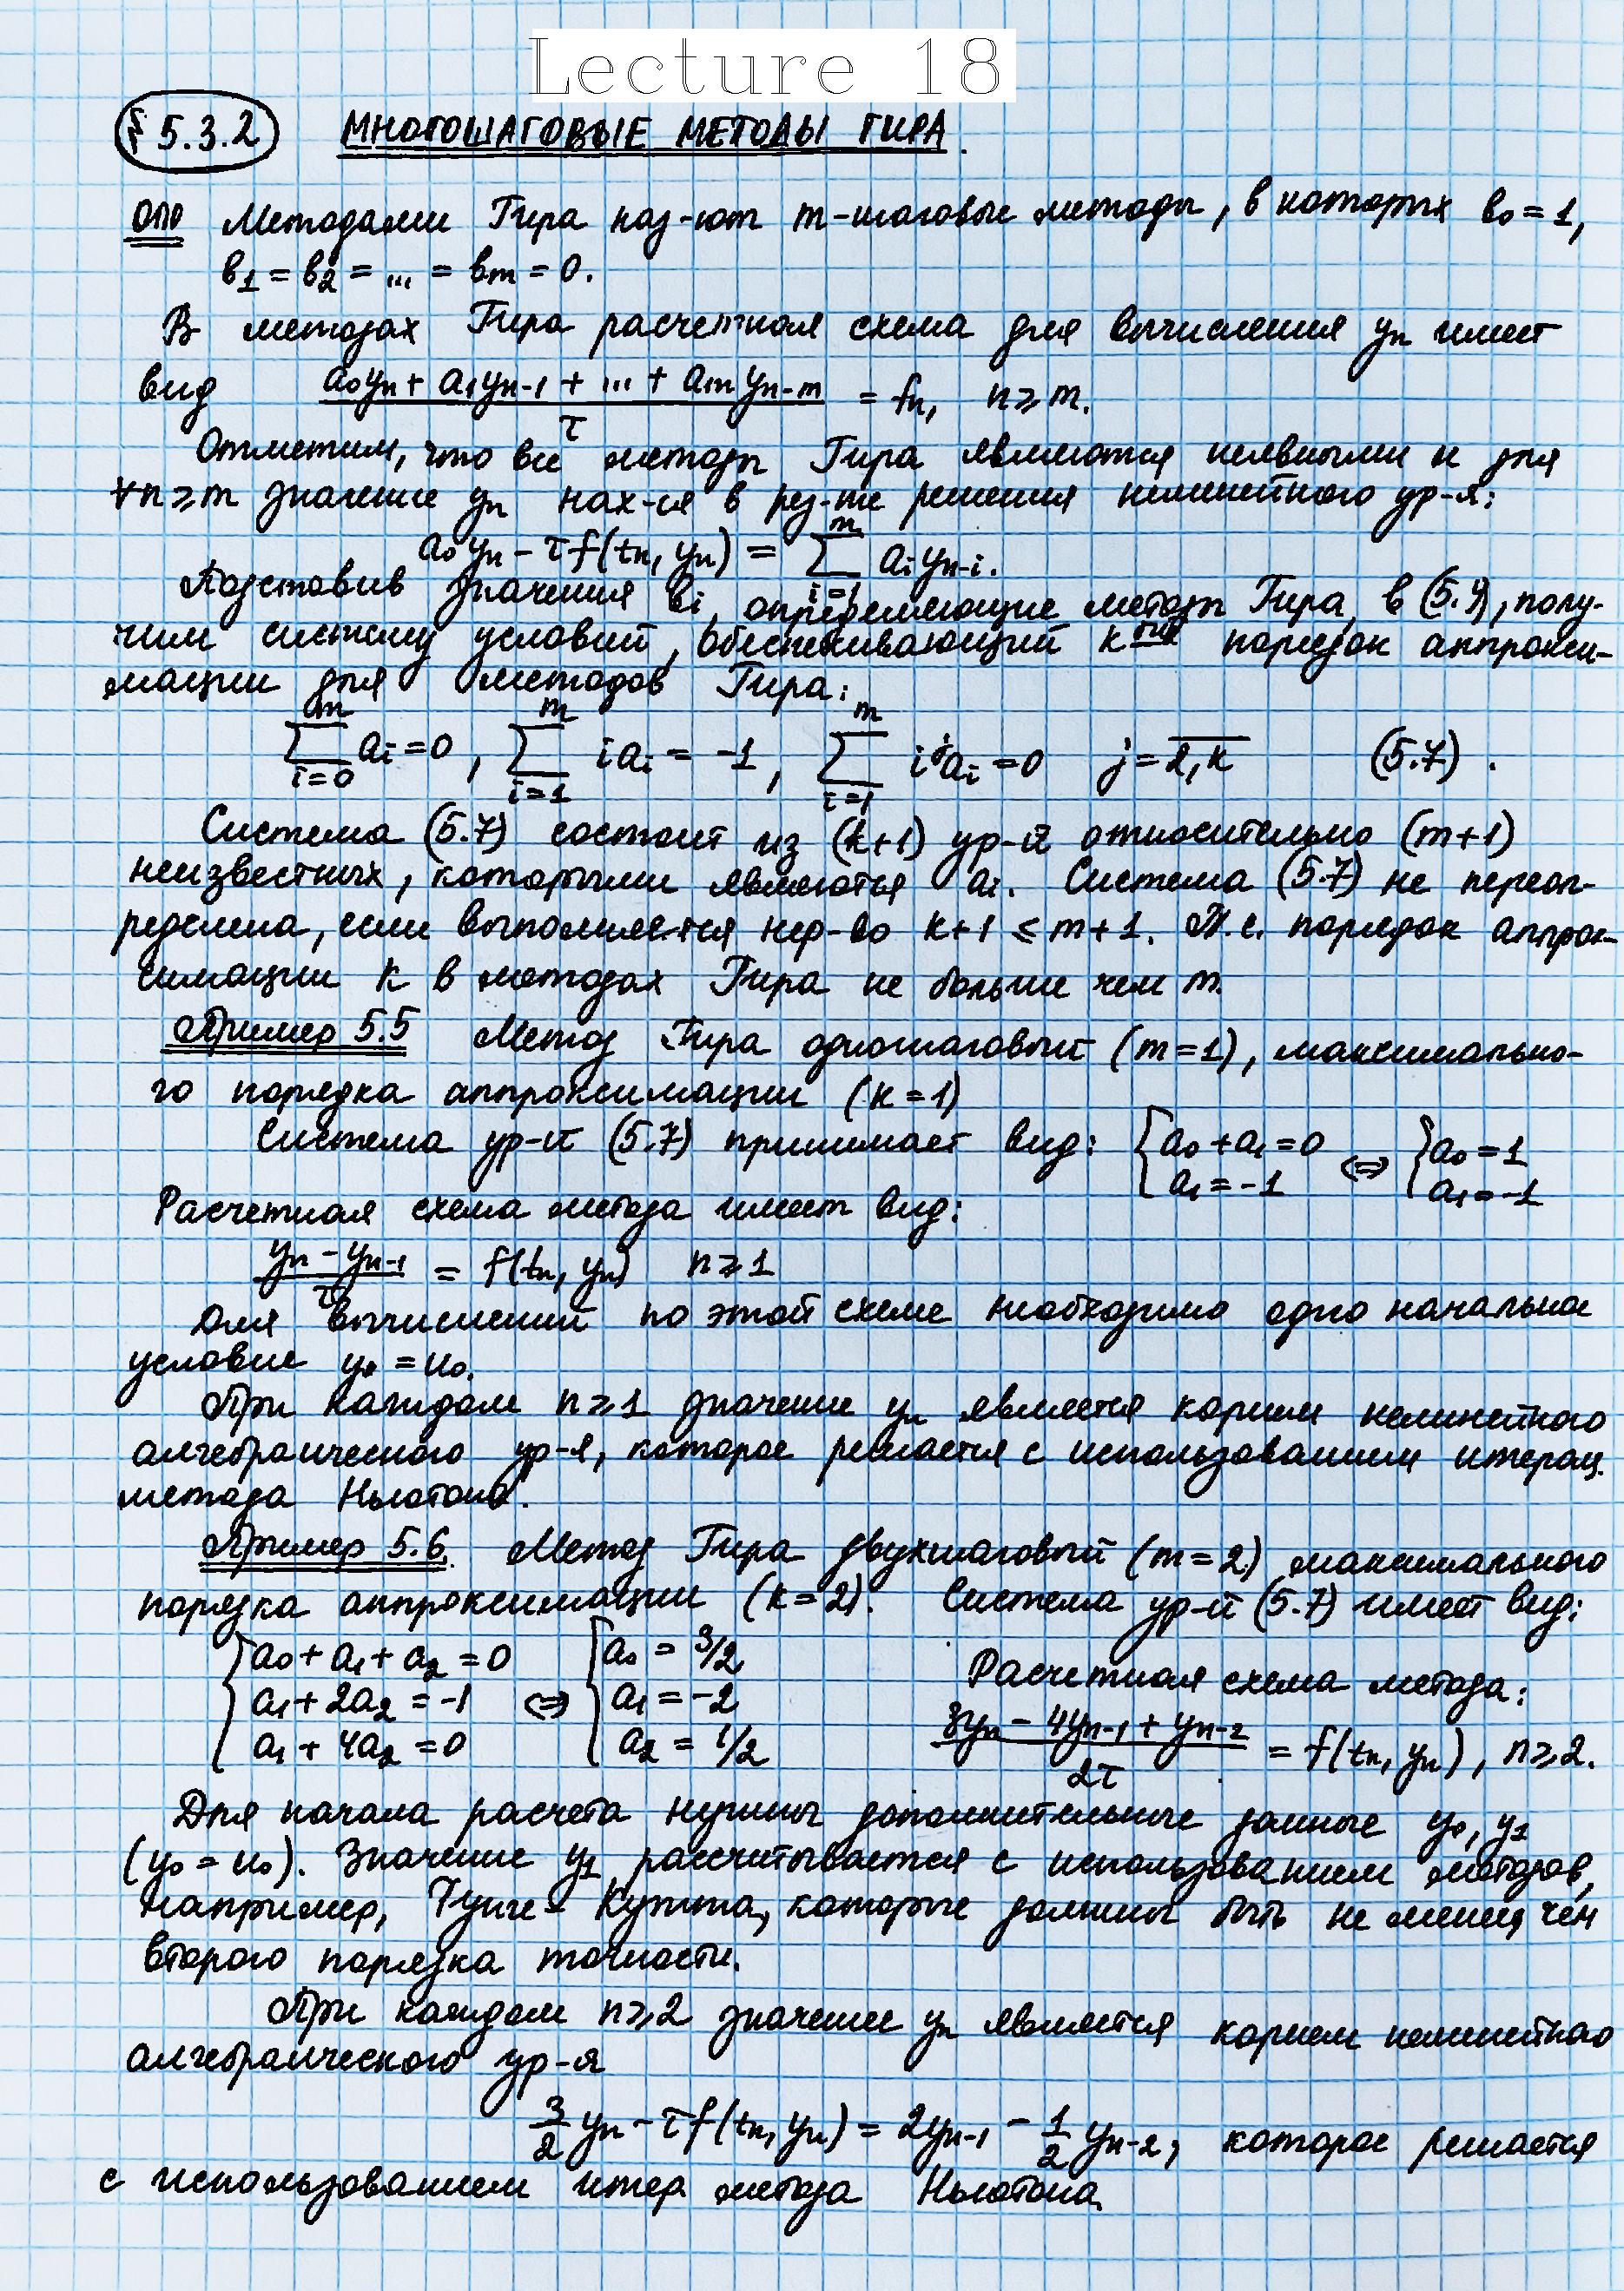 Lecture 18
§ 5.3.2 МНОГОШАГОВЫЕ МЕТОДЫ ГИРА.
ОПР Методами Гира наз-ют m-шаговые методы, в которых b₀ = 1,
b₁ = b₂ = ... = bₘ = 0.
В методах Гира расчетная схема для вычисления yₙ имеет
вид (a₀yₙ + a₁yₙ₋₁ + ... + aₘyₙ₋ₘ)/τ = fₙ, n ≥ m.
Отметим, что все методы Гира являются неявными и для
∀n ≥ m значение yₙ нах-ся в рез-те решения нелинейного ур-я:
a₀yₙ - τf(tₙ, yₙ) = ∑_{i=1}^{m} aᵢyₙ₋ᵢ.
Подставив значения bᵢ, определяющие методы Гира, в (5.4), полу-
чим систему условий, обеспечивающий k-ый порядок аппрокси-
мации для методов Гира:
∑_{i=0}^{m} aᵢ = 0, ∑_{i=1}^{m} iaᵢ = -1, ∑_{i=1}^{m} iʲaᵢ = 0 j = \overline{2,k} (5.7).
Система (5.7) состоит из (k+1) ур-й относительно (m+1)
неизвестных, которыми являются aᵢ. Система (5.7) не переоп-
ределена, если выполняется нер-во k+1 ≤ m+1. Т.е. порядок аппрок-
симации k в методах Гира не больше чем m.
Пример 5.5 Метод Гира одношаговый (m=1), максимально-
го порядка аппроксимации (k=1)
Система ур-й (5.7) принимает вид: {a₀ + a₁ = 0, a₁ = -1 ⇔ {a₀ = 1, a₁ = -1
Расчетная схема метода имеет вид:
(yₙ - yₙ₋₁)/τ = f(tₙ, yₙ) n ≥ 1
Для вычислений по этой схеме необходимо одно начальное
условие y₀ = u₀.
При каждом n ≥ 1 значение yₙ является корнем нелинейного
алгебраического ур-я, которое решается с использованием итерац.
метода Ньютона.
Пример 5.6. Метод Гира двухшаговый (m=2) максимального
порядка аппроксимации (k=2). Система ур-й (5.7) имеет вид:
{a₀ + a₁ + a₂ = 0, a₁ + 2a₂ = -1, a₁ + 4a₂ = 0 ⇔ {a₀ = 3/2, a₁ = -2, a₂ = 1/2
Расчетная схема метода:
(3yₙ - 4yₙ₋₁ + yₙ₋₂)/2τ = f(tₙ, yₙ), n ≥ 2.
Для начала расчета нужны дополнительные данные y₀, y₁
(y₀ = u₀). Значение y₁ рассчитывается с использованием методов,
например, Рунге - Кутта, которые должны быть не менее, чем
второго порядка точности.
При каждом n ≥ 2 значение yₙ является корнем нелинейного
алгебраического ур-я
3/2 yₙ - τf(tₙ, yₙ) = 2yₙ₋₁ - 1/2 yₙ₋₂, которое решается
с использованием итер. метода Ньютона.